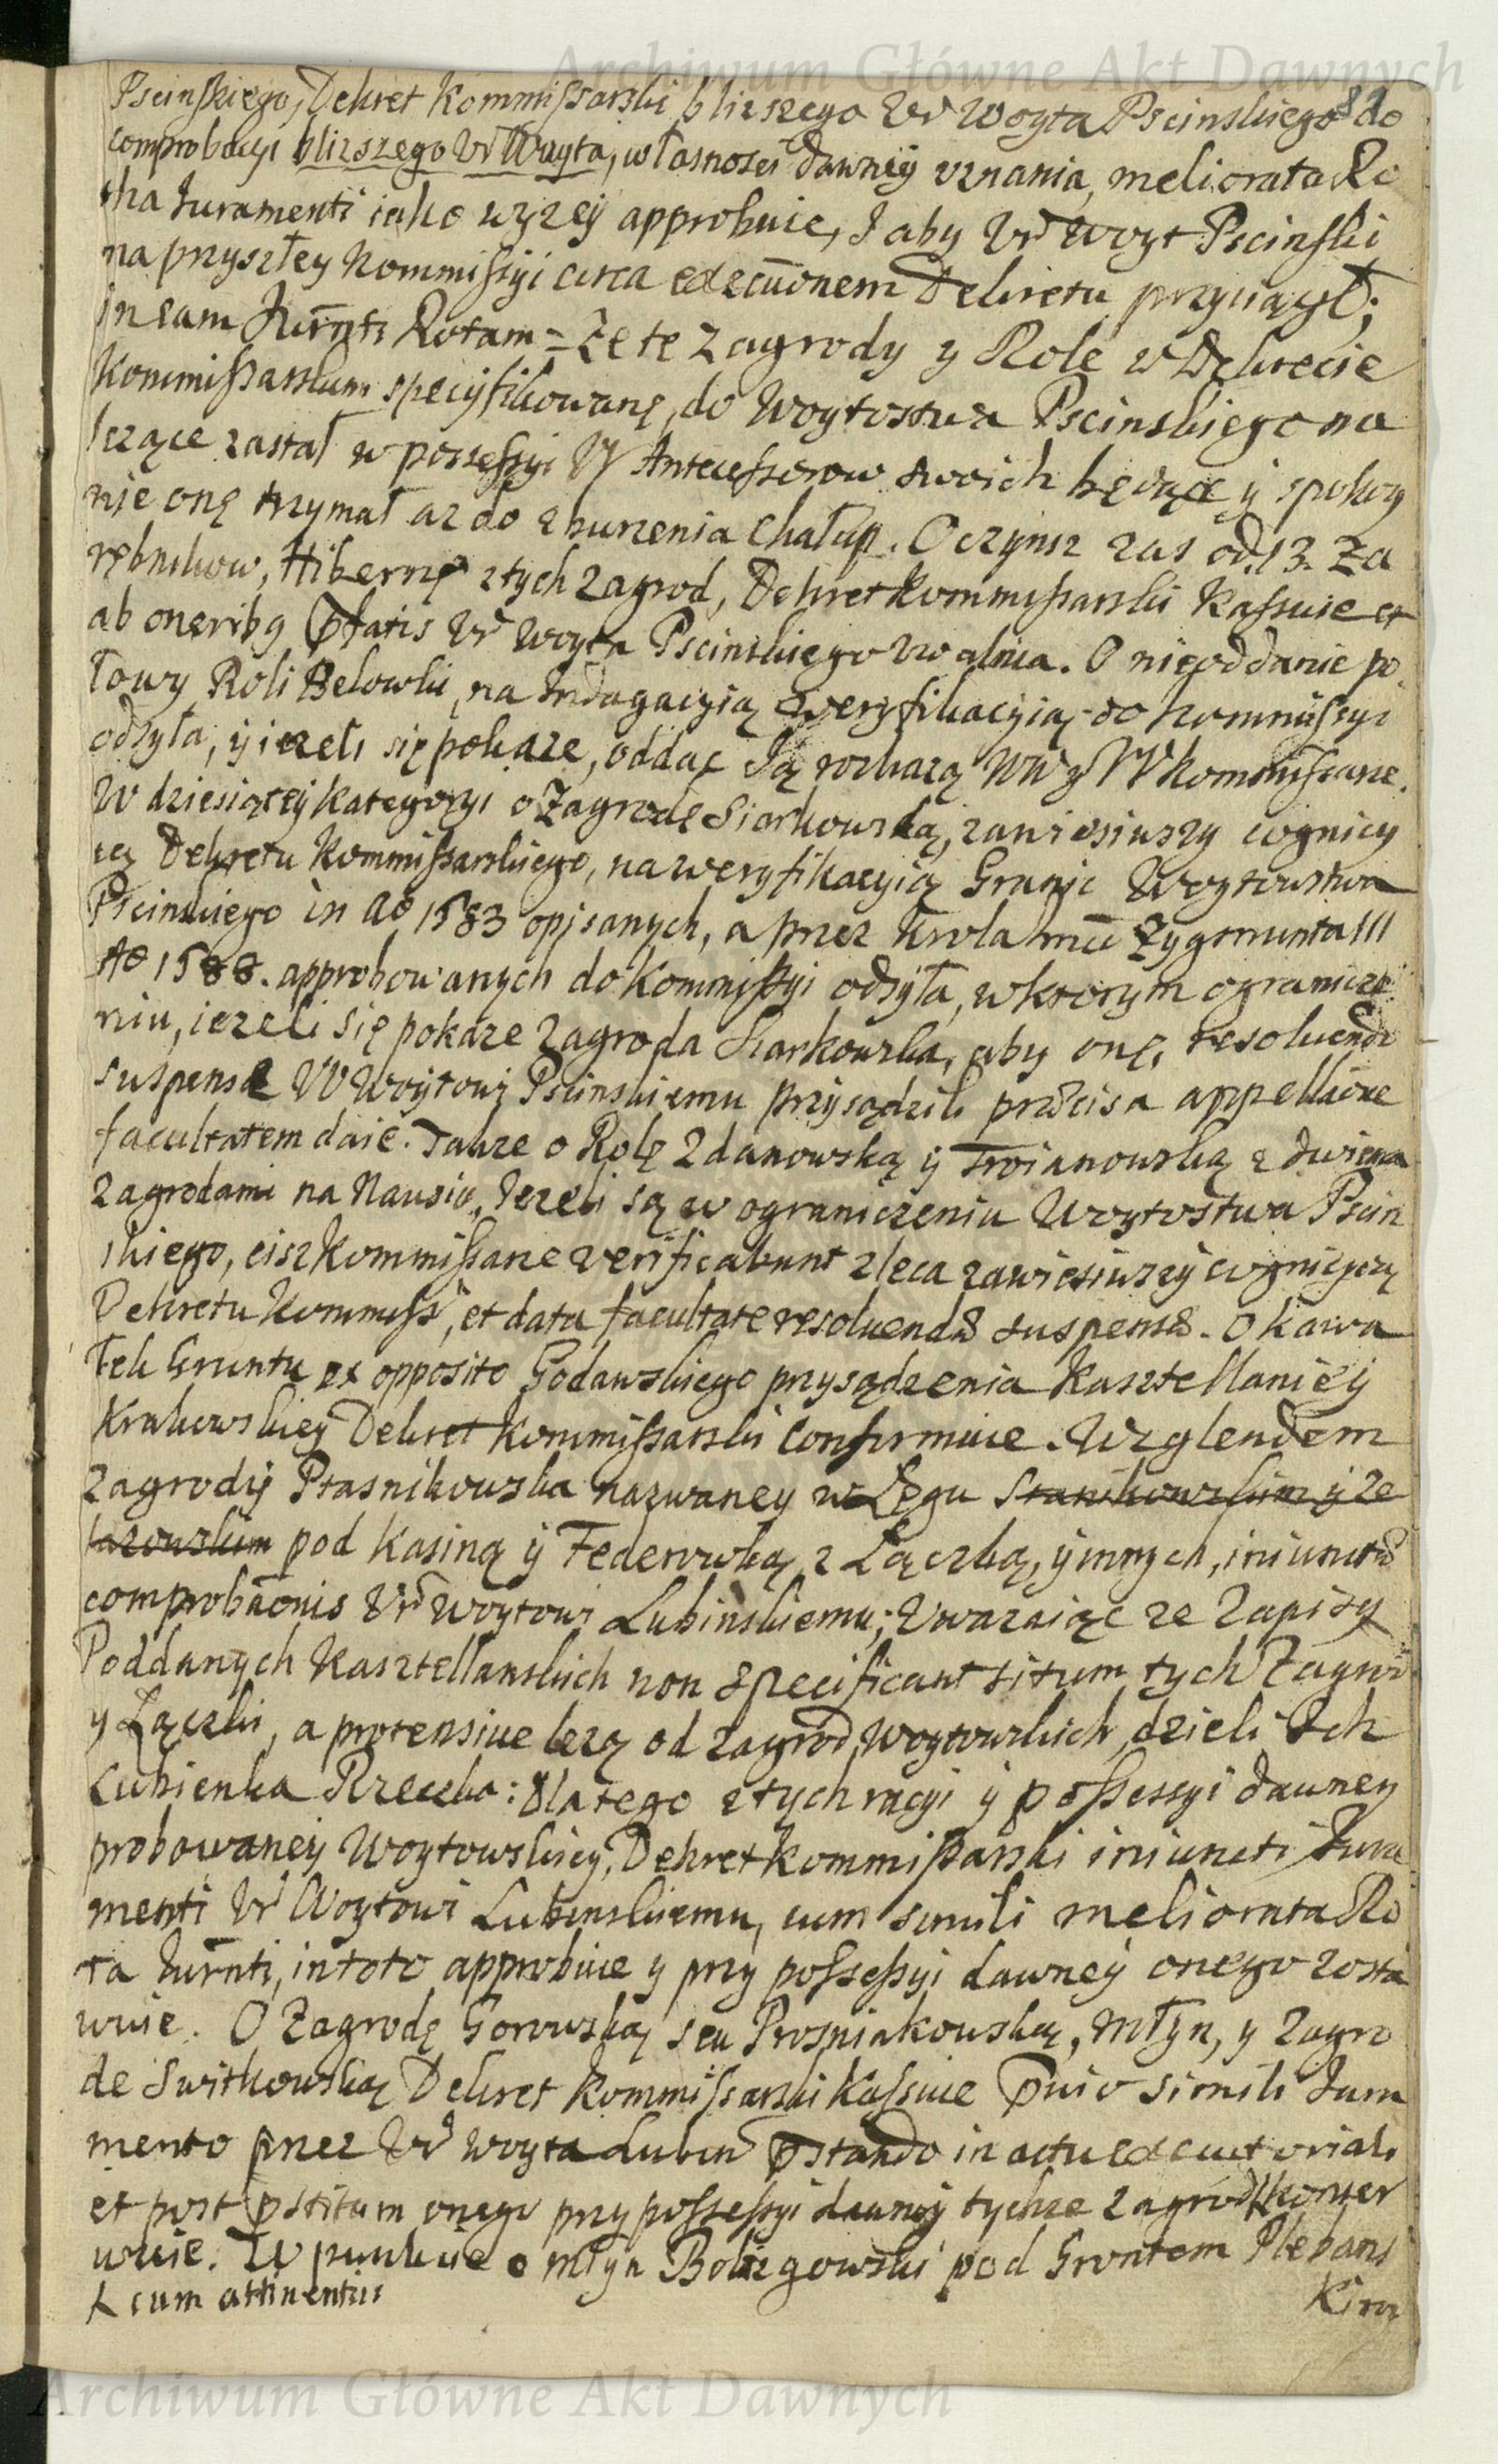 Archiwum Główne Akt Dawnych
81
Pscinskiego, Dekret Kommissarski blizszego Ur Woyta Pscinskiego do
comprobacyi blizszego Ur Woyta, własnosci dawney uznania, meliorata Ro
tha Juramenti iako wyzey approbuie, J aby Ur Woyt Pscinski
na przyszłey Kommissyi circa executionem Dekretu przysiągł;
in eam Jurnti Rotam = Ze te Zagrody y Role w Dekrecie
Kommissarskim specyfikowanę, do Woytostwa Pscinskiego na
lezące zastał w possessyi W Antecessorow swoich będące y spokoy
nie onę trzymał az do zburzenia Chałup. O czynsz zas od 13. Za
rębnikow, Hibernę z tych Zagrod, Dekret Kommissarski Kassuie et
ab oneribg pfatis Ur Woyta Pscinskiego uwalnia. O nieoddanie po
łowy Roli Belowki, na Jndagacyią y weryfikacyią do Kommissyi
odsyła, y iezeli się pokaze, oddac Ją rozkazą WW y W Kommissarze.
W dziesiątey kategoryi o Zagrodę Siarkowską, zawiesiwszy cognicy
ią Dekretu Kommissarskiego, na weryfikacyią Granic Woytowstwa
Pscinskiego in Ao 1583 opisanych, a przez Krola Jmci Zygmunta III
Ao 1588. approbowanych do Kommissyi odsyła, w ktorym ogranicze
niu, iezeli się pokaze Zagroda Siarkowska, aby onę, resoluendo
suspensa W Woytowi Pscinskiemu przysądzili przcisa appellaone
facultatem daie. Takze o Rolę Zdanowską y Troianowską z dwiema
Zagrodami na Nausiu, Jezeli są w ograniczeniu Woytostwa Pscin
skiego, cisz Kommissarze verificabunt zleca zawiesiwszy cognicyią
Dekretu Kommiss, et data facultate resoluendi suspensa. O Kawa
łek Gruntu ex opposito Godawskiego przysądzenia Kasztellaniey
Krakowskiey Dekret Kommissarski Confirmuie. Wzglendem
Zagrody Ptasnikowska nazwaney w Lęgu Stanikowskim y Ze
lazowskim pod Kasiną y Federowką z Łączką, y innych, iniuncta
comprobaonis Ur Woytowi Lubinskiemu; Uwazaiąc ze Zapisy
Poddanych Kasztellanskich non specificant situm tych Zagrod
y Łączki, a protensiue lezą od Zagrod Woytowskich, dzieli Jch
Lubienka Rzeczka: Dlatego z tych racyi y possessyi dawney
probowaney Woytowskiey, Dekret Kommissarski iniuncti Jura
menti Ur Woytowi Lubinskiemu, cum simili meliorata Ro
ta Jurnti, in toto approbuie y przy possessyi dawney onego zosta
wuie. O Zagrodę Gorowską seu Prosniakowską, Młyn, y Zagro
de Switkowską Dekret Kommissarski Kassuie pvio simili Jura
mento przez Ur Woyta Lubin pstando in actu executoriali
et post pstitum onego przy possessyi dawney tychze Zagrod konser
wuie. W punkcie o Młyn Bolizgowski pod Gruntem Plebans
X cum attinentiis
Kim
Archiwum Główne Akt Dawnych